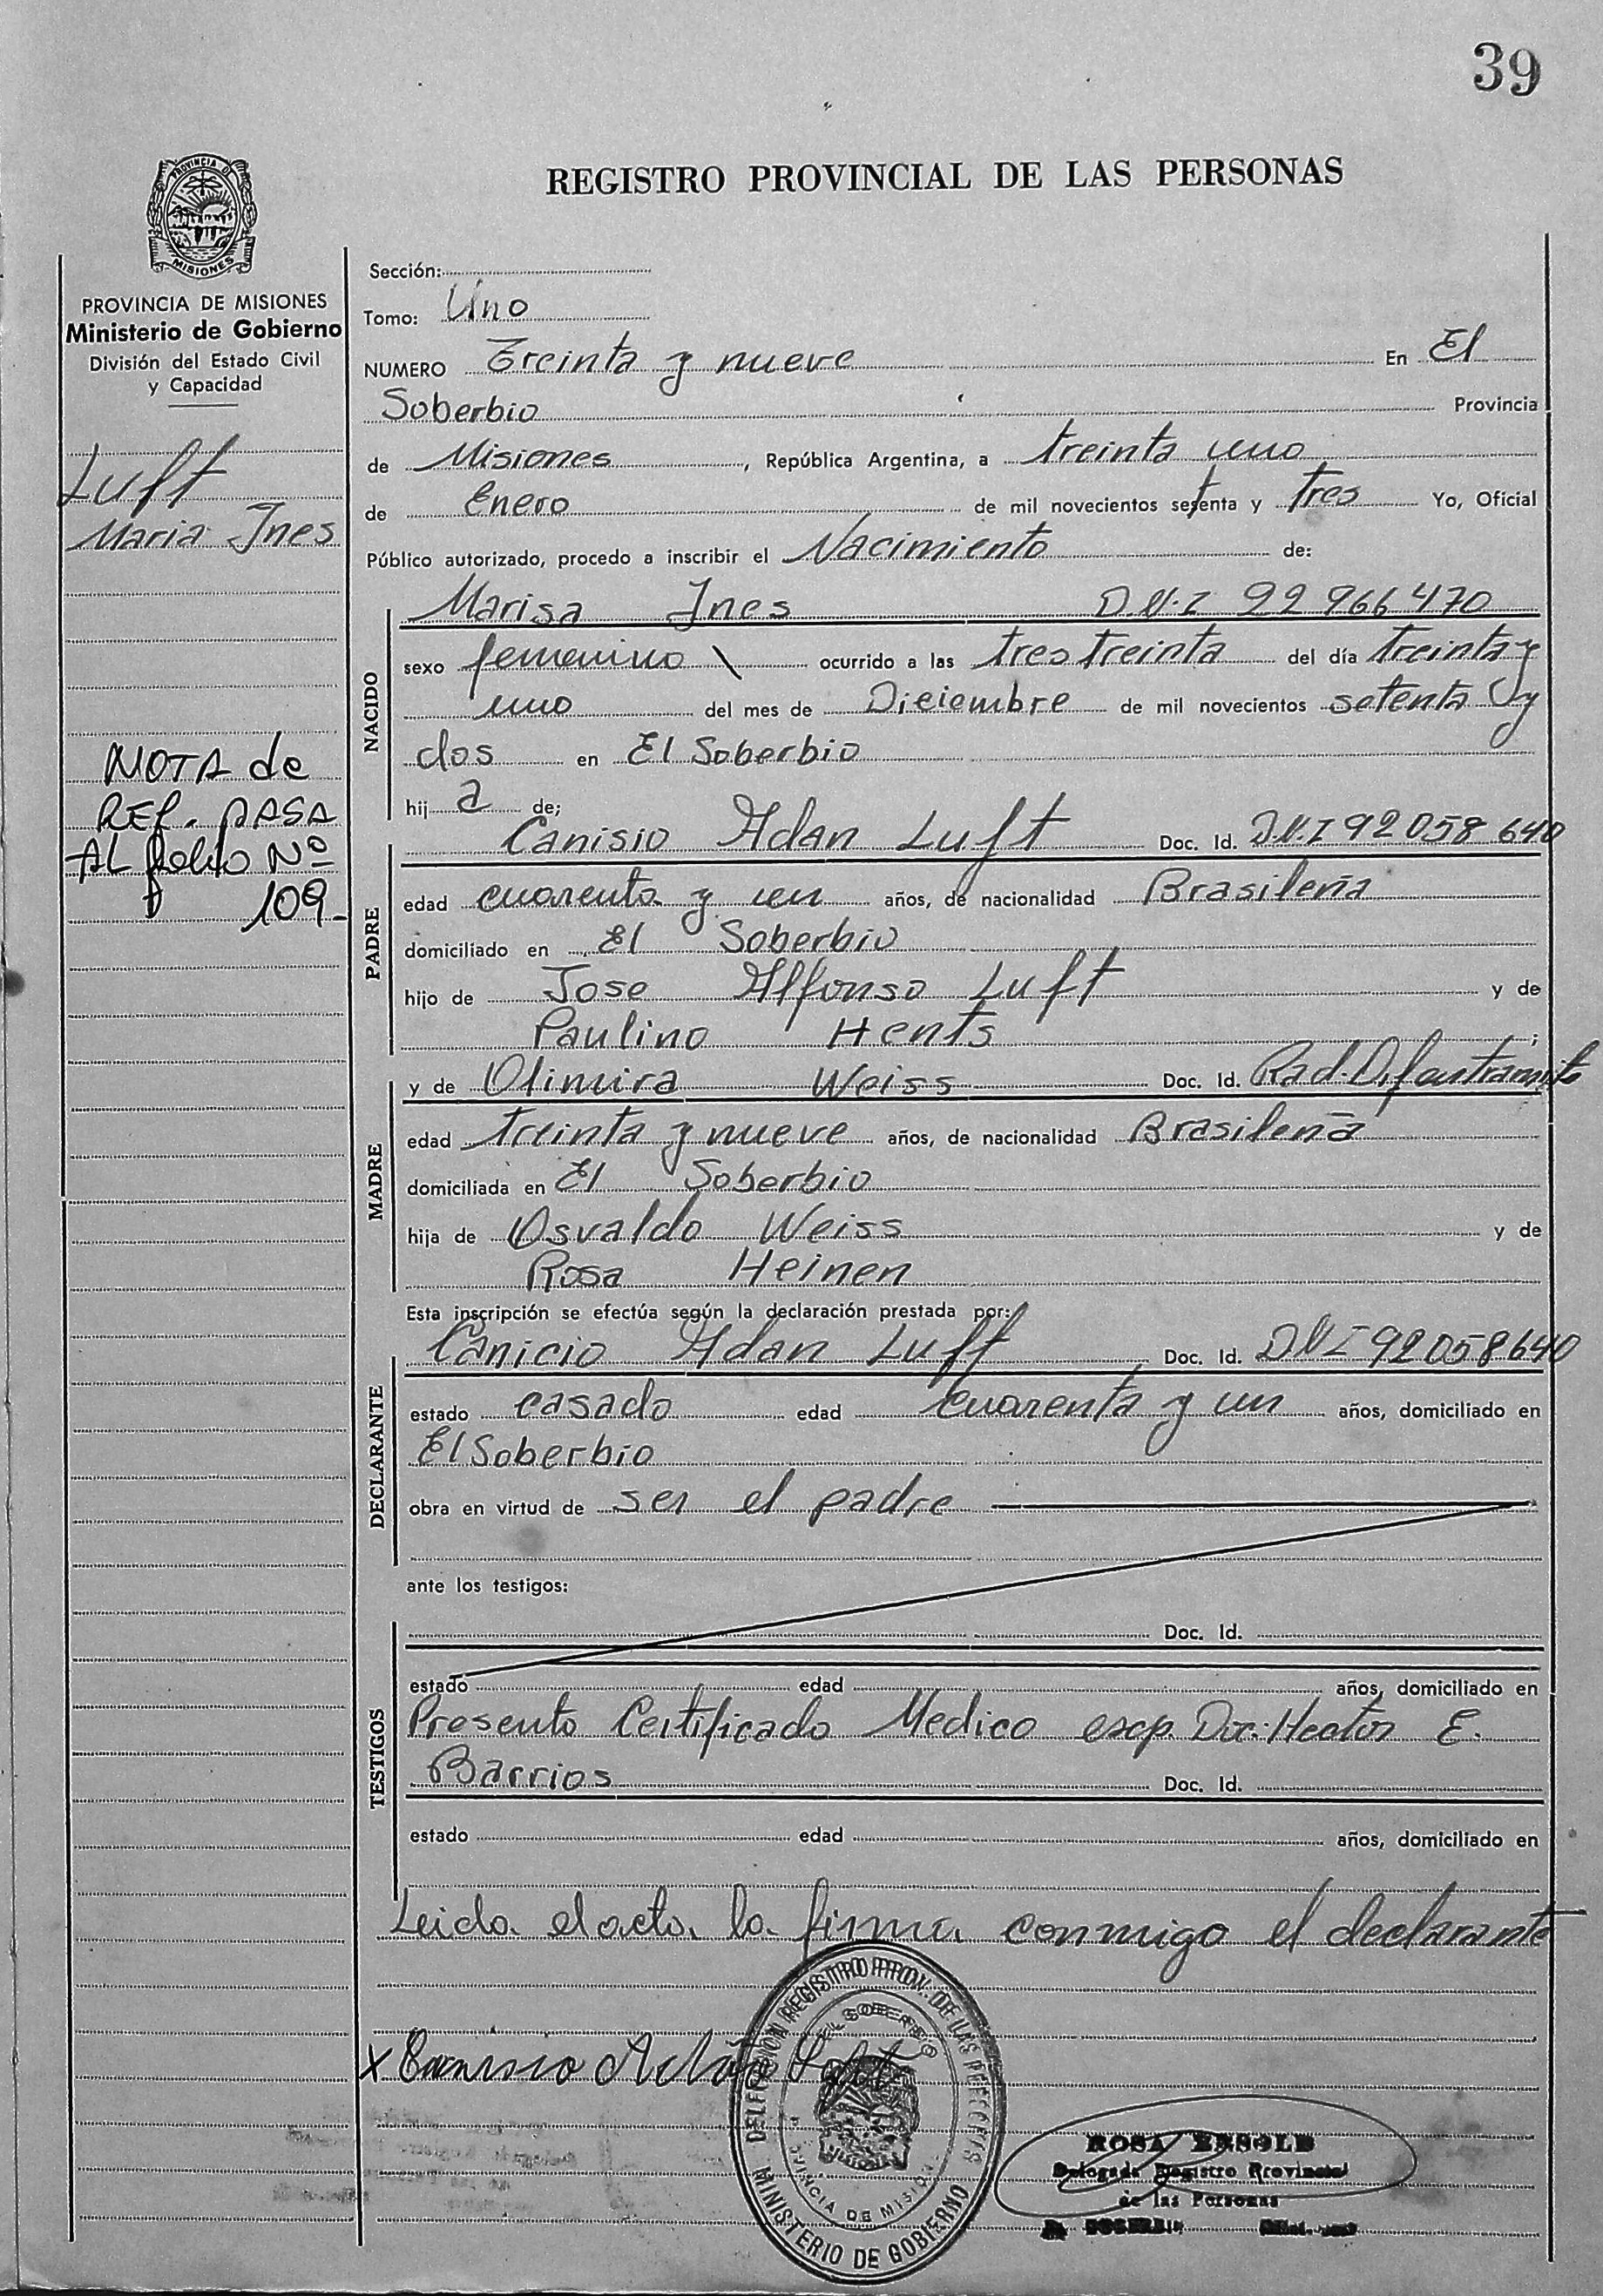 39
REGISTRO PROVINCIAL DE LAS PERSONAS
PROVINCIA DE MISIONES
PROVINCIA DE MISIONES
Ministerio de Gobierno
División del Estado Civil
y Capacidad
Luft
Maria Ines
NOTA de
REF. PASA
AL folio Nº
109-
Sección:
Tomo: Uno
NUMERO Treinta y nueve En El
Soberbio Provincia
de Misiones, República Argentina, a treinta uno
de Enero de mil novecientos setenta y tres Yo, Oficial
Público autorizado, procedo a inscribir el Nacimiento de:
NACIDO
Marisa Ines D.N.I 22 966 470
sexo femenino ocurrido a las tres treinta del día treinta y
uno del mes de Diciembre de mil novecientos setenta y
dos en El Soberbio
hij a de;
PADRE
Canisio Adan Luft Doc. Id. D.N.I 92 058 640
edad cuarenta y un años, de nacionalidad Brasileña
domiciliado en El Soberbio
hijo de Jose Alfonso Luft y de
Paulino Hents ;
MADRE
y de Olimira Weiss Doc. Id. Rad. Dif en tramite
edad treinta y nueve años, de nacionalidad Brasileña
domiciliada en El Soberbio
hija de Osvaldo Weiss y de
Rosa Heinen
Esta inscripción se efectúa según la declaración prestada por:
DECLARANTE
Canicio Adan Luft Doc. Id. DNI 92058640
estado casado edad cuarenta y un años, domiciliado en
El Soberbio
obra en virtud de ser el padre
ante los testigos:
TESTIGOS
Doc. Id.
estado edad años, domiciliado en
Presento Certificado Medico esep. Doc: Hector E.
Barrios Doc. Id.
estado edad años, domiciliado en
Leida el acta la firma conmigo el declarante
x Canisio Adão Luft
DELEGACION REGISTRO PROV. DE LAS PERSONAS
EL SOBERBIO
MISIONES
PROVINCIA DE MISIONES
MINISTERIO DE GOBIERNO
ROSA
Delegada Registro Provincial
de las Personas
EL SOBERBIO